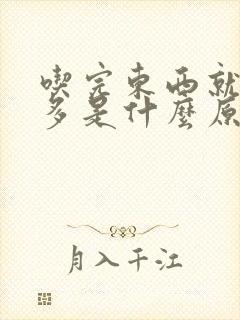 喫完東西就
多是什麼原
月入千江